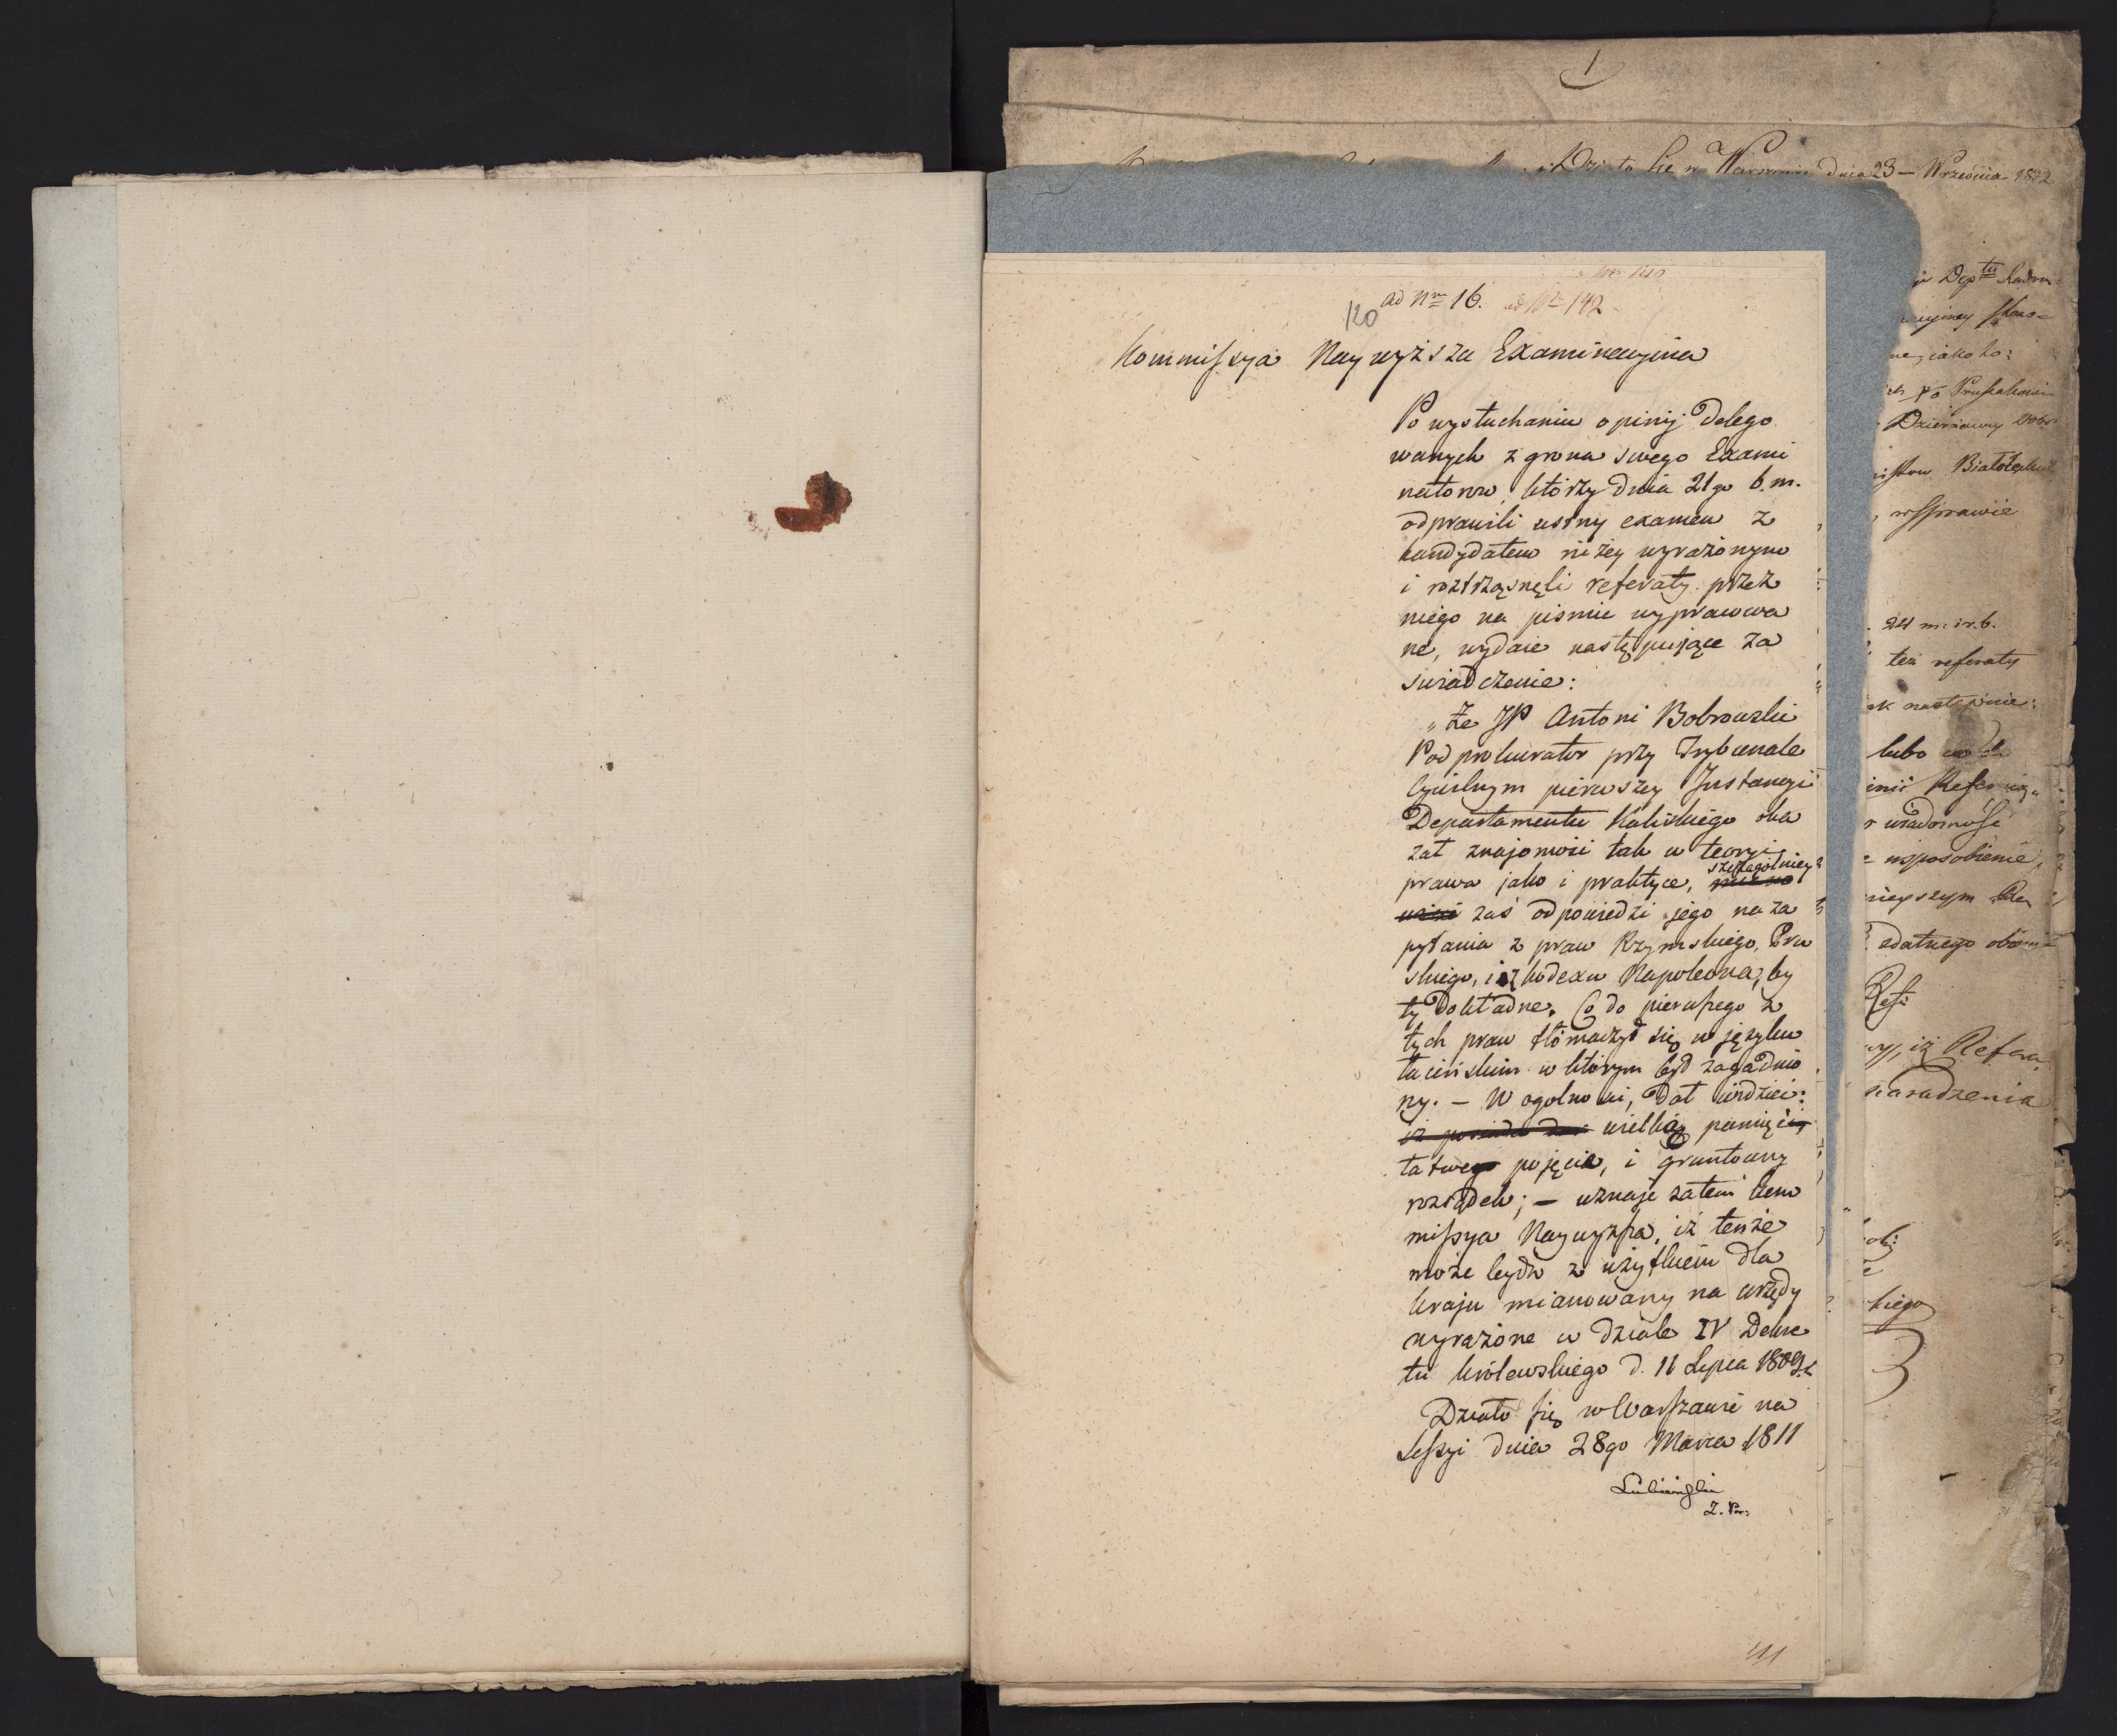 1
Działo się w Warszawie dnia 23 — Września 1812
Nro 140
ad Nrm 16. ad Nr 142
120
Kommissya Naywyższa Examinacyina
Po wysłuchaniu opinij Delego
wanych z grona swego Exami
natorow, którzy dnia 21go b. m.
odprawili ustny examen z
kandydatem niżey wyrażonym
i roztrząsnęli referaty przez
niego na pismie wypracowa
ne, wydaie następujące za
świadczenie:
„Że JP Antoni Bobrowski
Podprokurator przy Trybunale
Cywilnym pierwszey Instancyi
Departamentu Kaliskiego oka
zał znajomość tak w teoryi
prawa jako i praktyce, szczególniey
zaś odpowiedzi jego na za
pytania z praw Rzymskiego, Pru
skiego, i z kodexu Napoleona, by
ły dokładne. Co do pierwszego z
tych praw tłómaczył się w języku
łacińskim w którym był zagadnio
ny. — W ogolności, dał widzieć:
iz posiada dar wielką pamięć
łatwego pojęcia, i gruntowny
rozsądek; — uznaje zatem Kom
missya Naywyższa, iż tenże
może bydź z użytkiem dla
kraju mianowany na urzędy
wyrażone w dziale IV Dekre
tu królewskiego d. 11 Lipca 1809 r.
Działo się w Warszawie na
Sessyi dnia 28go Marca 1811
Łubieński
Z. Pr:
Dptu Radom
jako to:
Dzierżawy
w sprawie
24 m. i r. b.
też referaty
następnie:
lubo
wiadomość
usposobienie,
zdatnego
Ref:
iż Refera
kiego
141